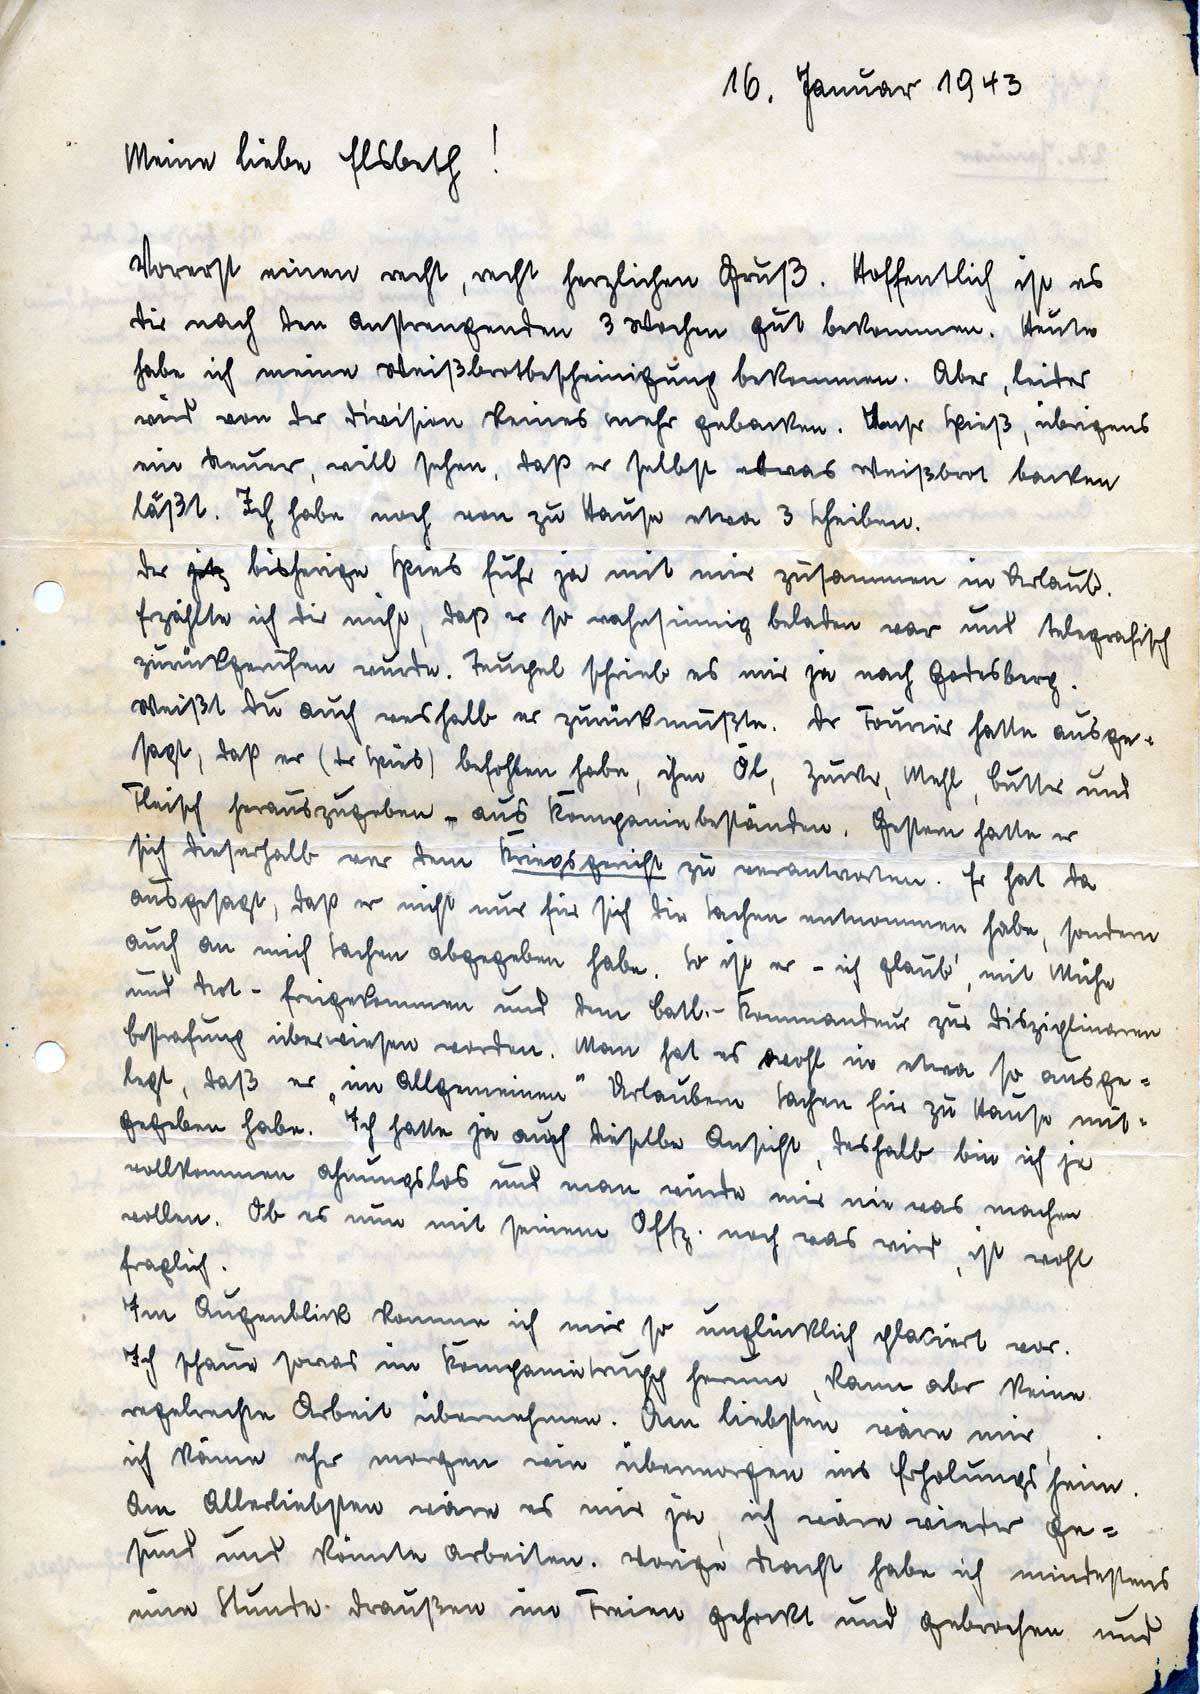 16. Januar 1943
Meine liebe Elsbeth!
Vorerst einen recht, recht herzlichen Gruß. Hoffentlich ist es
dir nach den anstrengenden 3 Wochen gut bekommen. Heute
habe ich meine Weißbrotbescheinigung bekommen. Aber, leider
wird von der Division keines mehr gebacken. Unser Spieß, übrigens
ein Neuer, will sehen, daß er selbst etwas Weißbrot backen
läßt. Ich habe noch von zu Hause etwa 3 Scheiben.
Der bisherige Spies fuhr ja mit mir zusammen in Urlaub.
Erzählte ich dir nicht, daß er so wahnsinnig beladen war und telegrafisch
zurückgerufen wurde. Teupel schrieb es mir ja nach Godesberg.
Weißt du auch weshalb er zurückmußte. Der Fourier hatte ausge-
sagt, daß er (der Spies) befohlen habe, ihm Öl, Zucker, Mehl, Butter und
Fleisch herauszugeben - aus Kompaniebeständen. Gestern hatte er
sich dieserhalb vor dem Kriegsgericht zu verantworten. Er hat da
ausgesagt, daß er nicht nur für sich die Sachen entnommen habe, sondern
auch an mich Sachen abgegeben habe. So ist er - ich glaub', mit Mühe
und Not - freigekommen und dem Batl.-Kommandeur zur disziplinaren
Bestrafung überwiesen worden. Man hat es wohl in etwa so ausge-
legt, daß er „im Allgemeinen" Urlaubern Sachen für zu Hause mit-
gegeben habe. Ich hatte ja auch dieselbe Ansicht, deshalb bin ich ja
vollkommen ahnungslos und man würde mir nie was machen
wollen. Ob es nun mit seinem Offz. noch was wird, ist wohl
fraglich.
Im Augenblick komme ich mir so unglücklich placiert vor.
Ich schaue sowas im Kompanietrupp herum, kann aber keine
regelrechte Arbeit übernehmen. Am liebsten wäre mir,
ich käme eher morgen wie übermorgen ins Erholungsheim.
Am Allerliebsten wäre es mir ja, ich wäre wieder ge-
sund und könnte arbeiten. Vorige Nacht habe ich mindestens
eine Stunde draußen im Freien gehockt und gebrochen und